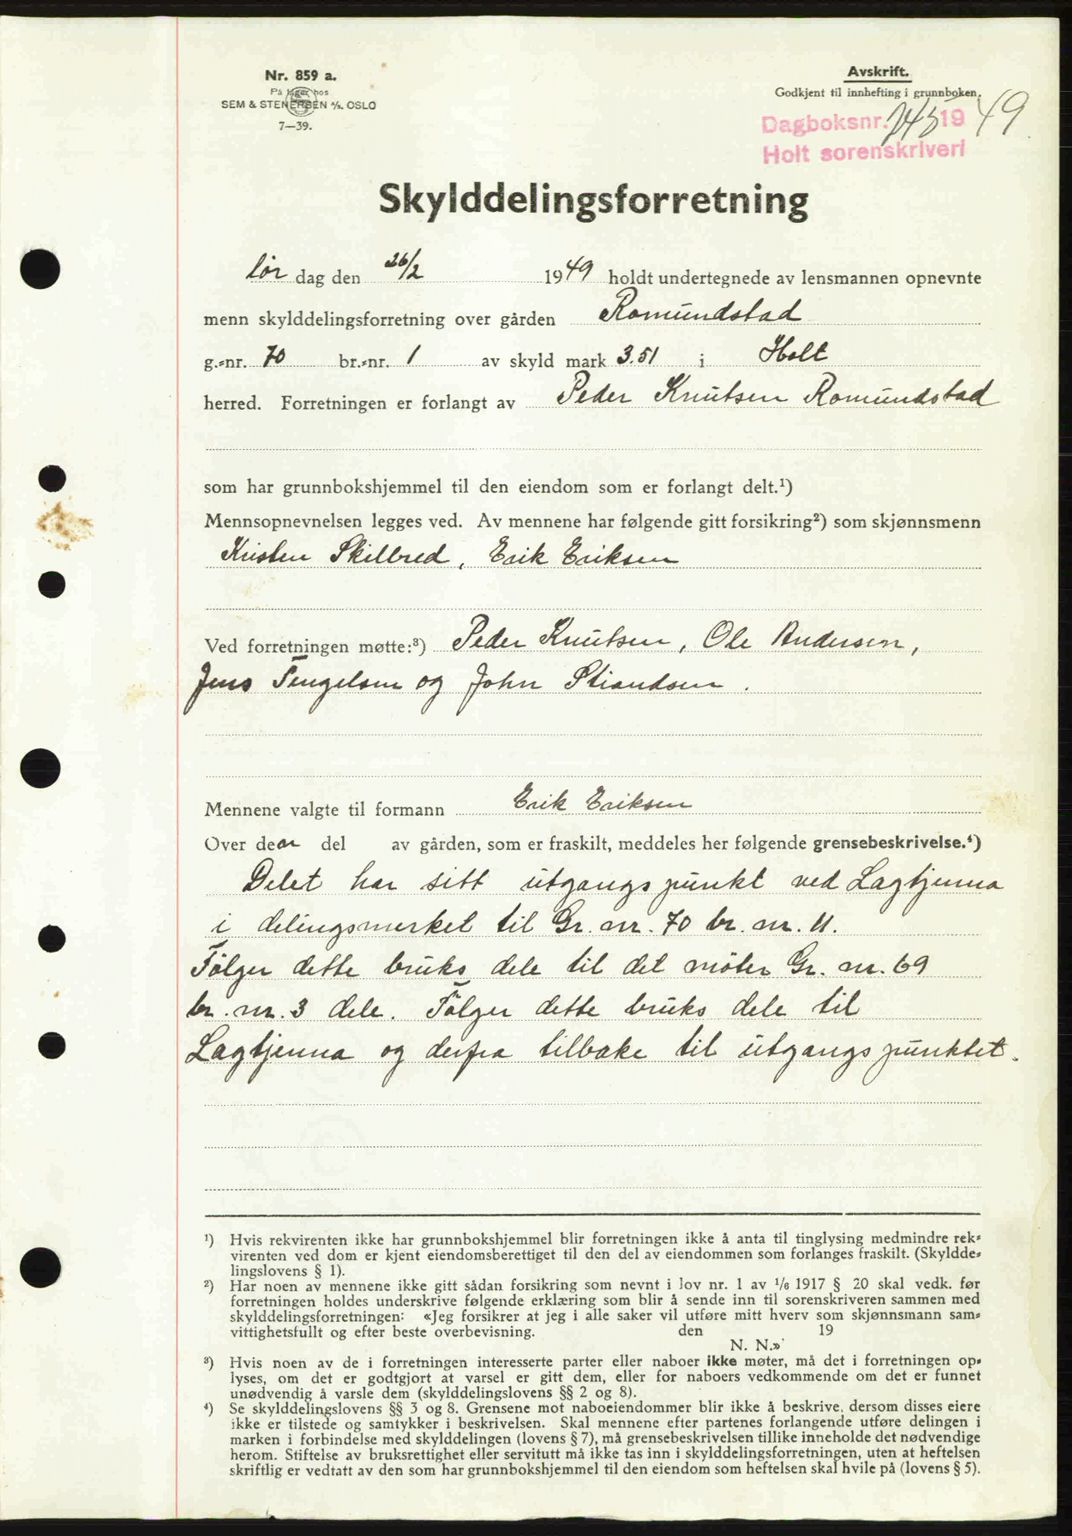 Nr. 859 a.
På lager hos
SEM & STENERSEN A/S. OSLO
7—39.
Avskrift.
Godkjent til innhefting i grunnboken.
Dagboksnr. 243 19 49
Holt sorenskriveri
Skylddelingsforretning
lør dag den 26/2 1949 holdt undertegnede av lensmannen opnevnte
menn skylddelingsforretning over gården Romundstad
g.-nr. 70 br.-nr. 1 av skyld mark 3.51 i Holt
herred. Forretningen er forlangt av Peder Knutsen Romundstad
som har grunnbokshjemmel til den eiendom som er forlangt delt.¹)
Mennsopnevnelsen legges ved. Av mennene har følgende gitt forsikring²) som skjønnsmenn
Kristen Skilbred, Erik Eriksen
Ved forretningen møtte:³) Peder Knutsen, Ole Andersen,
Jens Tengelsen og John Strandsen.
Mennene valgte til formann Erik Eriksen
Over den del av gården, som er fraskilt, meddeles her følgende grensebeskrivelse.⁴)
Delet har sitt utgangspunkt ved Lagtjenna
i delingsmerket til Gr. nr. 70 br. nr. 11.
Følger dette bruks dele til det møter Gr. nr. 69
br. nr. 3 dele. Følger dette bruks dele til
Lagtjenna og derfra tilbake til utgangspunktet.
¹) Hvis rekvirenten ikke har grunnbokshjemmel blir forretningen ikke å anta til tinglysing medmindre rek-
virenten ved dom er kjent eiendomsberettiget til den del av eiendommen som forlanges fraskilt. (Skyldde-
lingslovens § 1).
²) Har noen av mennene ikke gitt sådan forsikring som nevnt i lov nr. 1 av 1/6 1917 § 20 skal vedk. før
forretningen holdes underskrive følgende erklæring som blir å sende inn til sorenskriveren sammen med
skylddelingsforretningen: «Jeg forsikrer at jeg i alle saker vil utføre mitt hverv som skjønnsmann sam-
vittighetsfullt og efter beste overbevisning. den 19
N. N.»
³) Hvis noen av de i forretningen interesserte parter eller naboer ikke møter, må det i forretningen op-
lyses, om det er godtgjort at varsel er gitt dem, eller for naboers vedkommende om det er funnet
unødvendig å varsle dem (skylddelingslovens §§ 2 og 8).
⁴) Se skylddelingslovens §§ 3 og 8. Grensene mot naboeiendommer blir ikke å beskrive, dersom disses eiere
ikke er tilstede og samtykker i beskrivelsen. Skal mennene efter partenes forlangende utføre delingen i
marken i forbindelse med skylddelingen (lovens § 7), må grensebeskrivelsen tillike inneholde det nødvendige
herom. Stiftelse av bruksrettighet eller servitutt må ikke tas inn i skylddelingsforretningen, uten at heftelsen
skriftlig er vedtatt av den som har grunnbokshjemmel til den eiendom som heftelsen skal hvile på (lovens § 5).